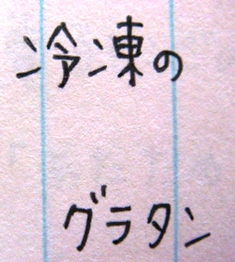 冷凍の
グラタン